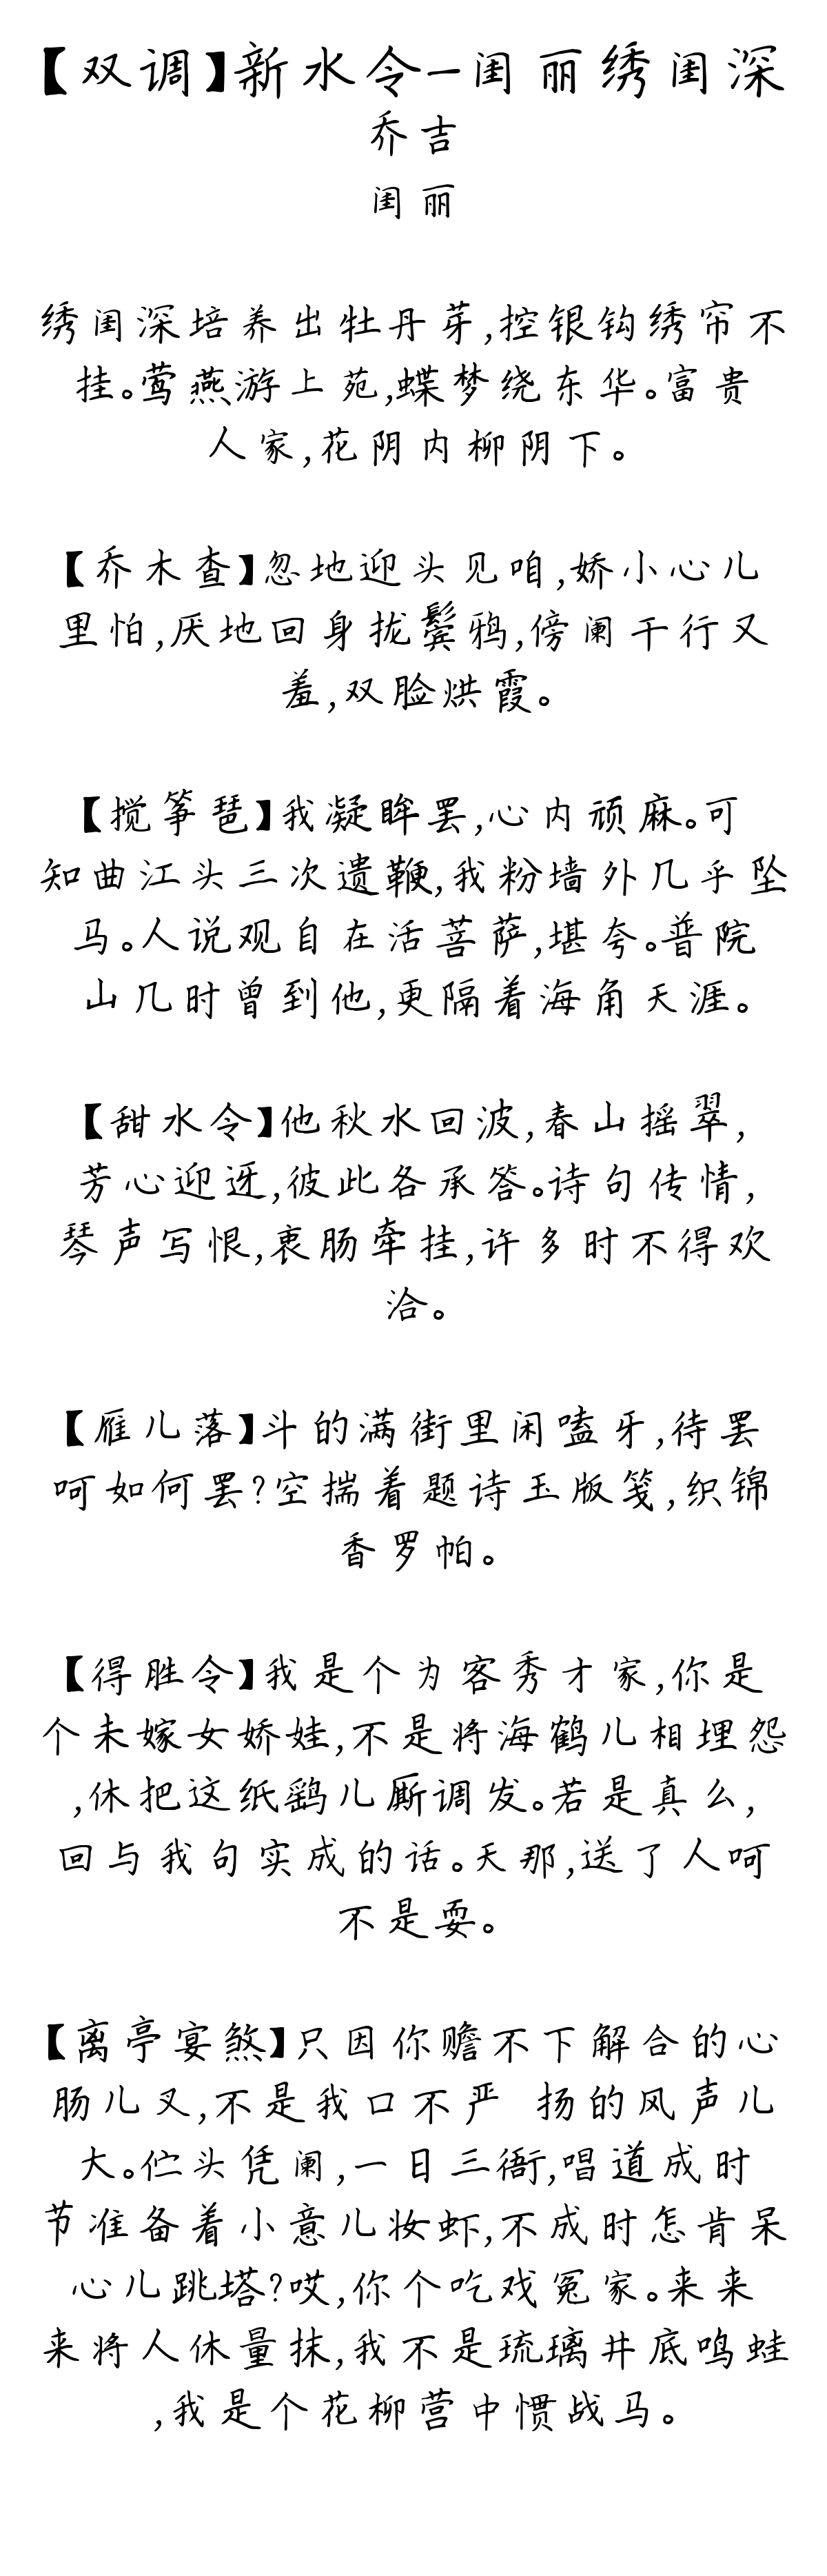 【双调】新水令-闺丽绣闺深
乔吉
闺丽
绣闺深培养出牡丹芽,控银钩绣帘不
挂。莺燕游上苑,蝶梦绕东华。富贵
人家,花阴内柳阴下。
【乔木查】忽地迎头见咱,娇小心儿
里怕,厌地回身拢鬓鸦,傍阑干行又
羞,双脸烘霞。
【搅筝琶】我凝眸罢,心内顽麻。可
知曲江头三次遗鞭,我粉墙外几乎坠
马。人说观自在活菩萨,堪夸。普院
山几时曾到他,更隔着海角天涯。
【甜水令】他秋水回波,春山摇翠,
芳心迎迓,彼此各承答。诗句传情,
琴声写恨,衷肠牵挂,许多时不得欢
洽。
【雁儿落】斗的满街里闲嗑牙,待罢
呵如何罢?空揣着题诗玉版笺,织锦
香罗帕。
【得胜令】我是个为客秀才家,你是
个未嫁女娇娃,不是将海鹤儿相埋怨
,休把这纸鹞儿厮调发。若是真么,
回与我句实成的话。天那,送了人呵
不是耍。
【离亭宴煞】只因你赡不下解合的心
肠儿叉,不是我口不严 扬的风声儿
大。伫头凭阑,一日三衙,唱道成时
节准备着小意儿妆虾,不成时怎肯呆
心儿跳塔?哎,你个吃戏冤家。来来
来将人休量抹,我不是琉璃井底鸣蛙
,我是个花柳营中惯战马。